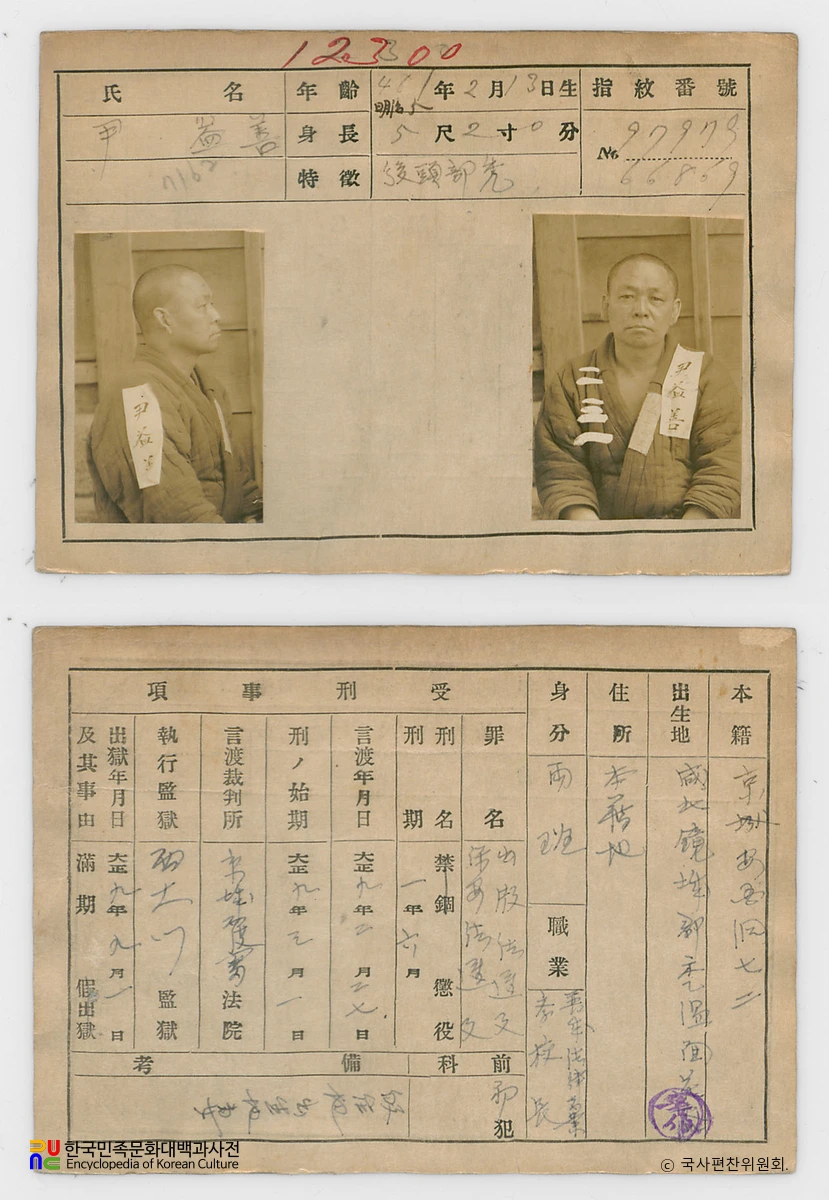 12300
氏名
尹益善
7162
年齡
明治5年2月13日生
身長
5尺2寸0分
特徵
後頭部禿
指紋番號
No 97979
66869
尹益善
二三一
尹益善
本籍
京城 安國洞七二
出生地
咸北鏡城郡 溫面
住所
本籍地
身分
兩班
職業
普成法律商業
學校長
受刑事項
罪名
出版法違反
保安法違反
刑名
禁錮 懲役
刑期
一年六月
言渡年月日
大正九年二月二七日
刑ノ始期
大正九年三月一日
言渡裁判所
京城覆審法院
執行監獄
西大門監獄
出獄年月日
及其事由
大正九年九月一日
滿期 假出獄
前科
初犯
備考
한국민족문화대백과사전
Encyclopedia of Korean Culture
© 국사편찬위원회.